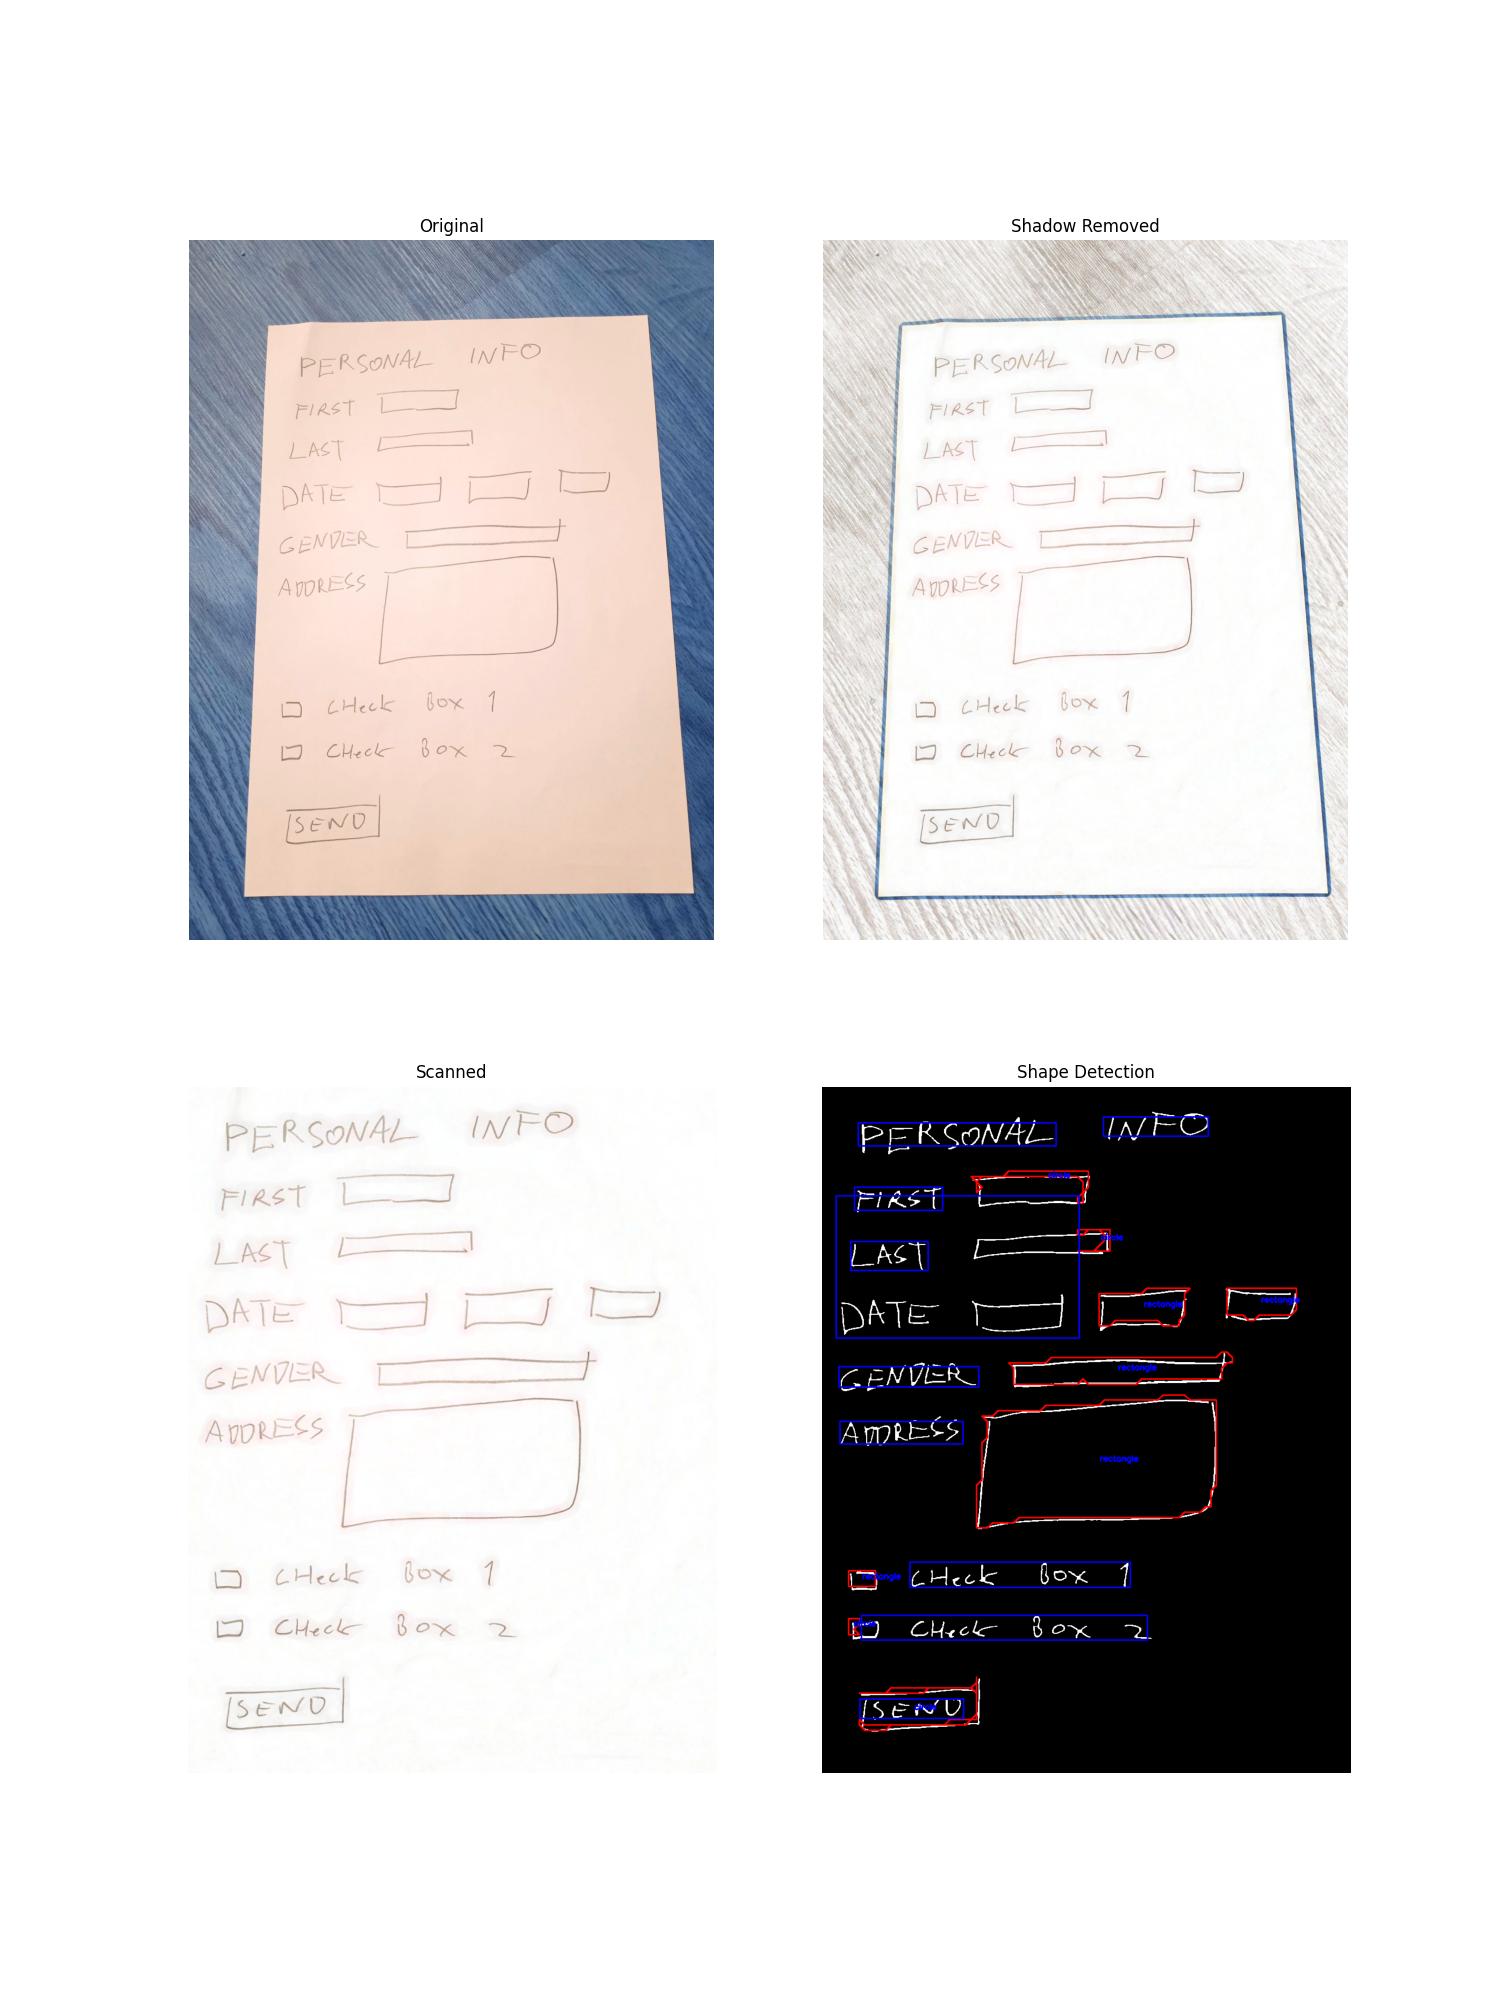 Original
PERSONAL INFO
FIRST
LAST
DATE
GENDER
ADDRESS
CHeck Box 1
CHeck Box 2
SEND
Shadow Removed
PERSONAL INFO
FIRST
LAST
DATE
GENDER
ADDRESS
CHeck Box 1
CHeck Box 2
SEND
Scanned
PERSONAL INFO
FIRST
LAST
DATE
GENDER
ADDRESS
CHeck Box 1
CHeck Box 2
SEND
Shape Detection
PERSONAL INFO
FIRST
LAST
DATE rectangle rectangle
GENDER rectangle
ADDRESS
rectangle
rectangle CHeck Box 1
CHeck Box 2
SEND